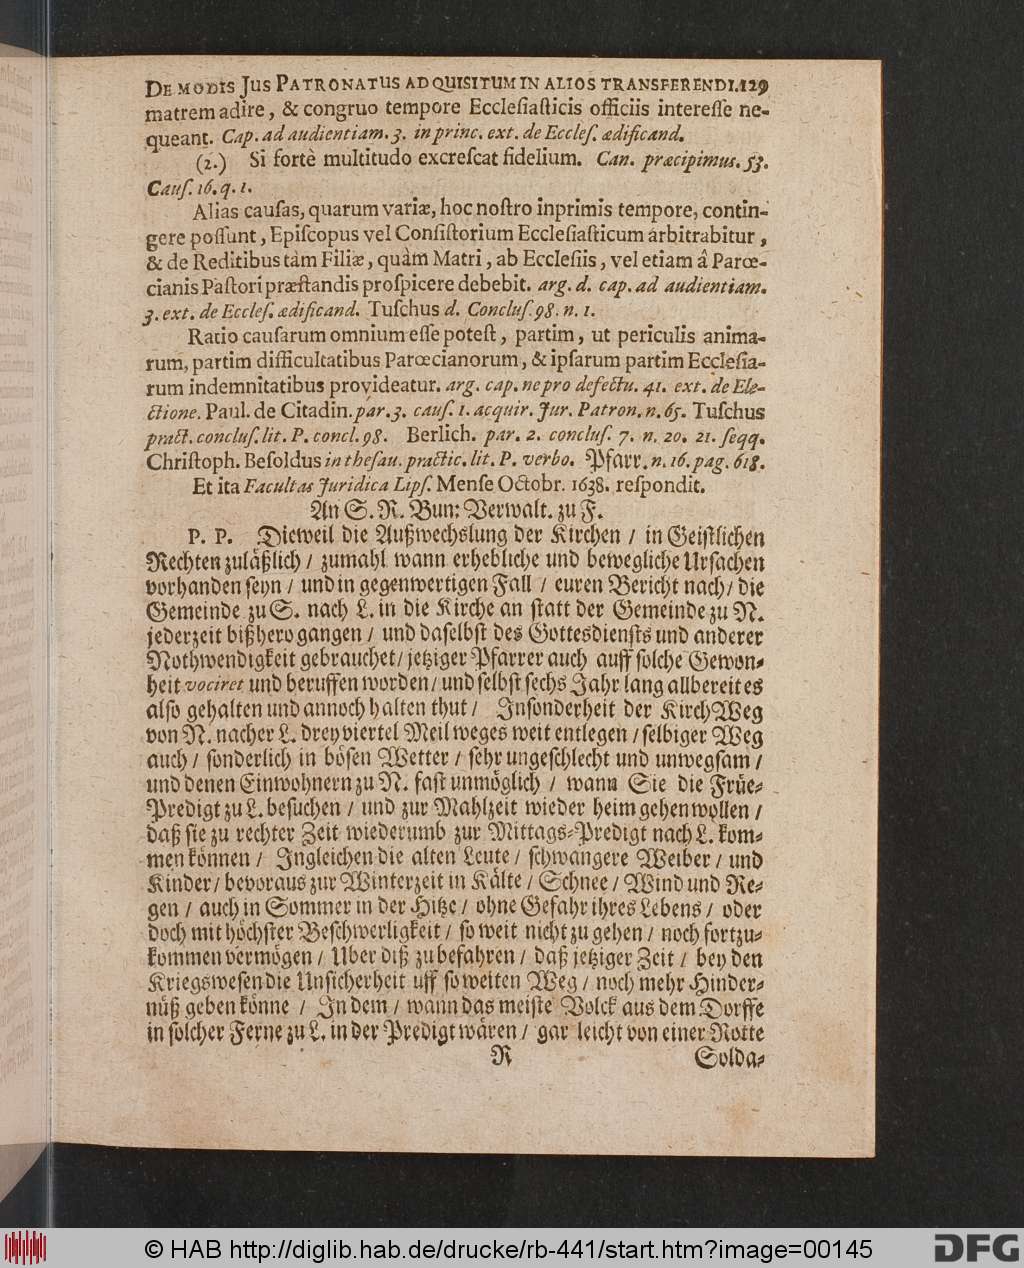 DE MODIS JUS PATRONATUS ADQUISITUM IN ALIOS TRANSFERENDI. 129
matrem adire, & congruo tempore Eccleſiaſticis officiis intereſſe ne-
queant. Cap. ad audientiam. 3. in princ. ext. de Eccleſ. ædificand.
(2.) Si fortè multitudo excreſcat fidelium. Can. præcipimus. 53.
Cauſ. 16. q. 1.
Alias cauſas, quarum variæ, hoc noſtro inprimis tempore, contin-
gere poſſunt, Epiſcopus vel Conſiſtorium Eccleſiaſticum arbitrabitur,
& de Reditibus tàm Filiæ, quàm Matri, ab Eccleſiis, vel etiam â Parœ-
cianis Paſtori præſtandis proſpicere debebit. arg. d. cap. ad audientiam.
3. ext. de Eccleſ. ædificand. Tuſchus d. Concluſ. 98. n. 1.
Ratio cauſarum omnium eſſe poteſt, partim, ut periculis anima-
rum, partim difficultatibus Parœcianorum, & ipſarum partim Eccleſia-
rum indemnitatibus provideatur. arg. cap. ne pro defectu. 41. ext. de Ele-
ctione. Paul. de Citadin. par. 3. cauſ. 1. acquir. Jur. Patron. n. 65. Tuſchus
pract. concluſ. lit. P. concl. 98. Berlich. par. 2. concluſ. 7. n. 20. 21. ſeqq.
Chriſtoph. Beſoldus in theſau. practic. lit. P. verbo. Pfarr. n. 16. pag. 618.
Et ita Facultas Juridica Lipſ. Menſe Octobr. 1638. reſpondit.
An S. R. Bun: Verwalt. zu F.
P. P. Dieweil die Außwechslung der Kirchen / in Geiſtlichen
Rechten zuläßlich / zumahl wann erhebliche und bewegliche Urſachen
vorhanden ſeyn / und in gegenwertigen Fall / euren Bericht nach / die
Gemeinde zu S. nach L. in die Kirche an ſtatt der Gemeinde zu N.
jederzeit bißhero gangen / und daſelbſt des Gottesdienſts und anderer
Nothwendigkeit gebrauchet / jetziger Pfarrer auch auff ſolche Gewon-
heit vociret und beruffen worden / und ſelbſt ſechs Jahr lang allbereit es
alſo gehalten und annoch halten thut / Inſonderheit der KirchWeg
von N. nacher L. drey viertel Meil weges weit entlegen / ſelbiger Weg
auch / ſonderlich in böſen Wetter / ſehr ungeſchlecht und unwegſam /
und denen Einwohnern zu N. faſt unmöglich / wann Sie die Früe-
Predigt zu L. beſuchen / und zur Mahlzeit wieder heim gehen wollen /
daß ſie zu rechter Zeit wiederumb zur Mittags-Predigt nach L. kom-
men können / Ingleichen die alten Leute / ſchwangere Weiber / und
Kinder / bevoraus zur Winterzeit in Kälte / Schnee / Wind und Re-
gen / auch in Sommer in der Hitze / ohne Gefahr ihres Lebens / oder
doch mit höchſter Beſchwerligkeit / ſo weit nicht zu gehen / noch fortzu-
kommen vermögen / Uber diß zu befahren / daß jetziger Zeit / bey den
Kriegsweſen die Unſicherheit uff ſo weiten Weg / noch mehr Hinder-
nüß geben könne / In dem / wann das meiſte Volck aus dem Dorffe
in ſolcher Ferne zu L. in der Predigt wären / gar leicht von einer Rotte
R Solda-
© HAB http://diglib.hab.de/drucke/rb-441/start.htm?image=00145
DFG